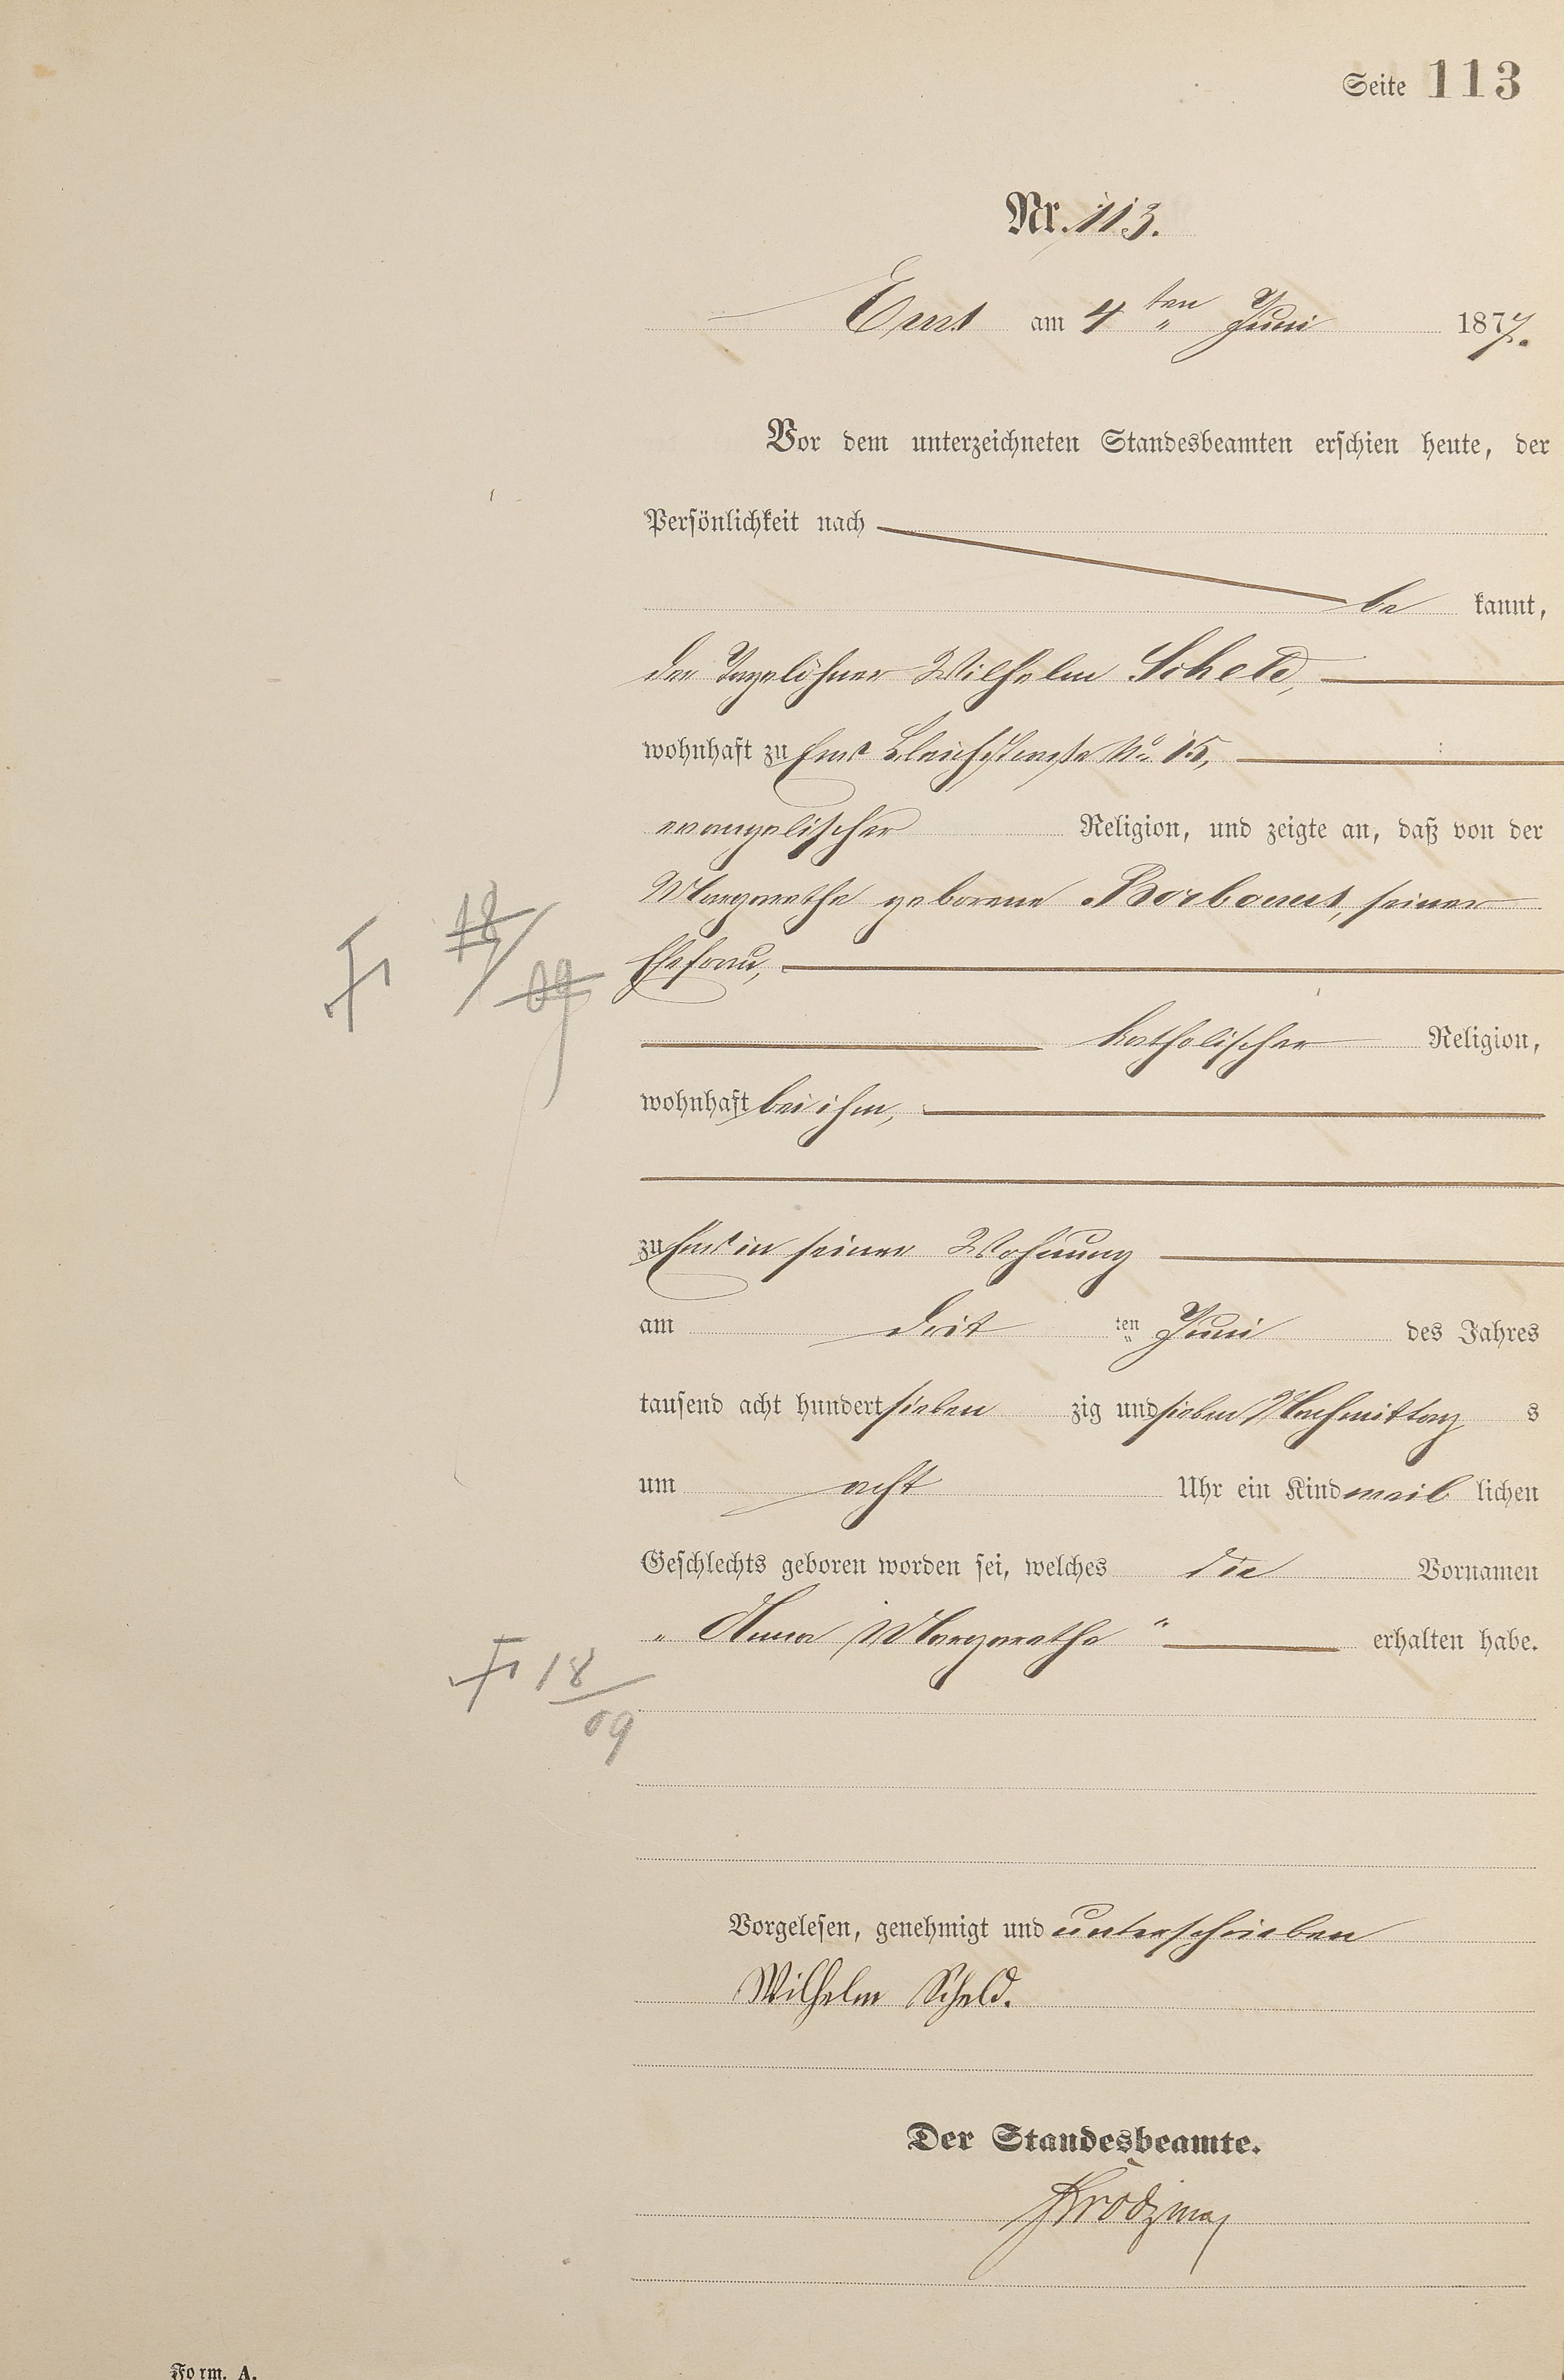 Seite 113
Nr. 113.
Ems am 4ten Juni 1877.
Vor dem unterzeichneten Standesbeamten erschien heute, der
Persönlichkeit nach
be kannt,
der Tagelöhner Wilhelm Scheld,
wohnhaft zu Ems Bleichstraße No. 15,
evangelischer Religion, und zeigte an, daß von der
Margarethe geborene seiner
Ehefrau,
katholischer Religion,
wohnhaft bei ihm,
zu Ems in seiner Wohnung
am drit ten Juni des Jahres
tausend acht hundert sieben zig und sieben Nachmittag s
um acht Uhr ein Kind weib lichen
Geschlechts geboren worden sei, welches die Vornamen
„ Anna Margarethe " erhalten habe.
18
09
Vorgelesen, genehmigt und unterschrieben
Wilhelm Scheld.
Der Standesbeamte.
Form. A.